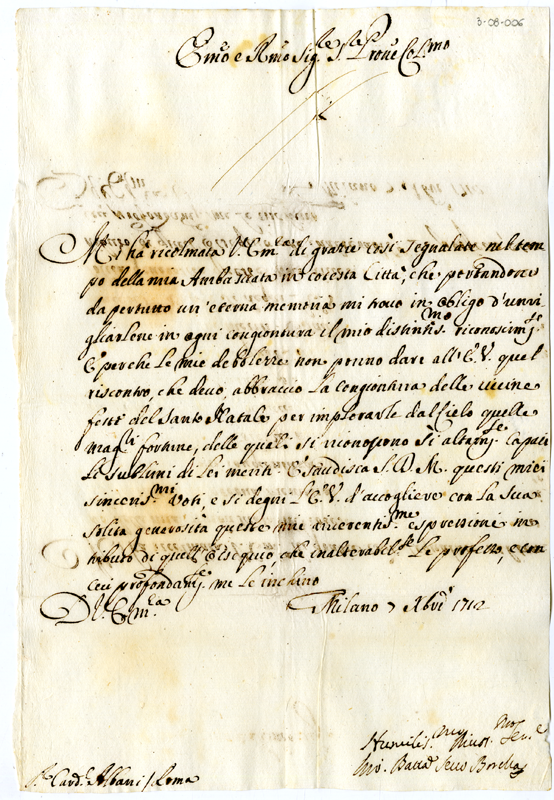 3-08-006
Em.o e R.mo Sig.re Sig.re Prone Col.mo
M'ha ricolmata V. Em.za di gratie così segnalate nel tem
po della mia Ambasciata in cotesta Città, che portandone
da pertutto un'eterna memoria mi trovo in obligo d'
gliarlene in ogni congiontura il mio distintiss.mo riconoscim.to
E perche le mie debolezze non ponno dare all'E. V. quel
riscontro, che devo, abbraccio la congiontura delle vicine
feste del Santo Natale per implorarle dal Cielo quelle
mag.ri fortune, delle quali si riconoscono sì altam.te capaci
li sublimi di Lei meriti. Esaudisca S. D. M. questi miei
sinceriss.mi voti, e si degni l'E. V. d'accogliere con la sua
solita generosità queste mie riverentiss.me espressioni in
tributo di quell'ossequio, che inalterabil.te le professo, e con
cui profondam.te me le inchino
Di V. Em.za
Milano 7 Xbre 1712
Humiliss.mo Divot.mo Ser.e
Gio. Batta Secco Borella
S.r Card.l Albani / Roma